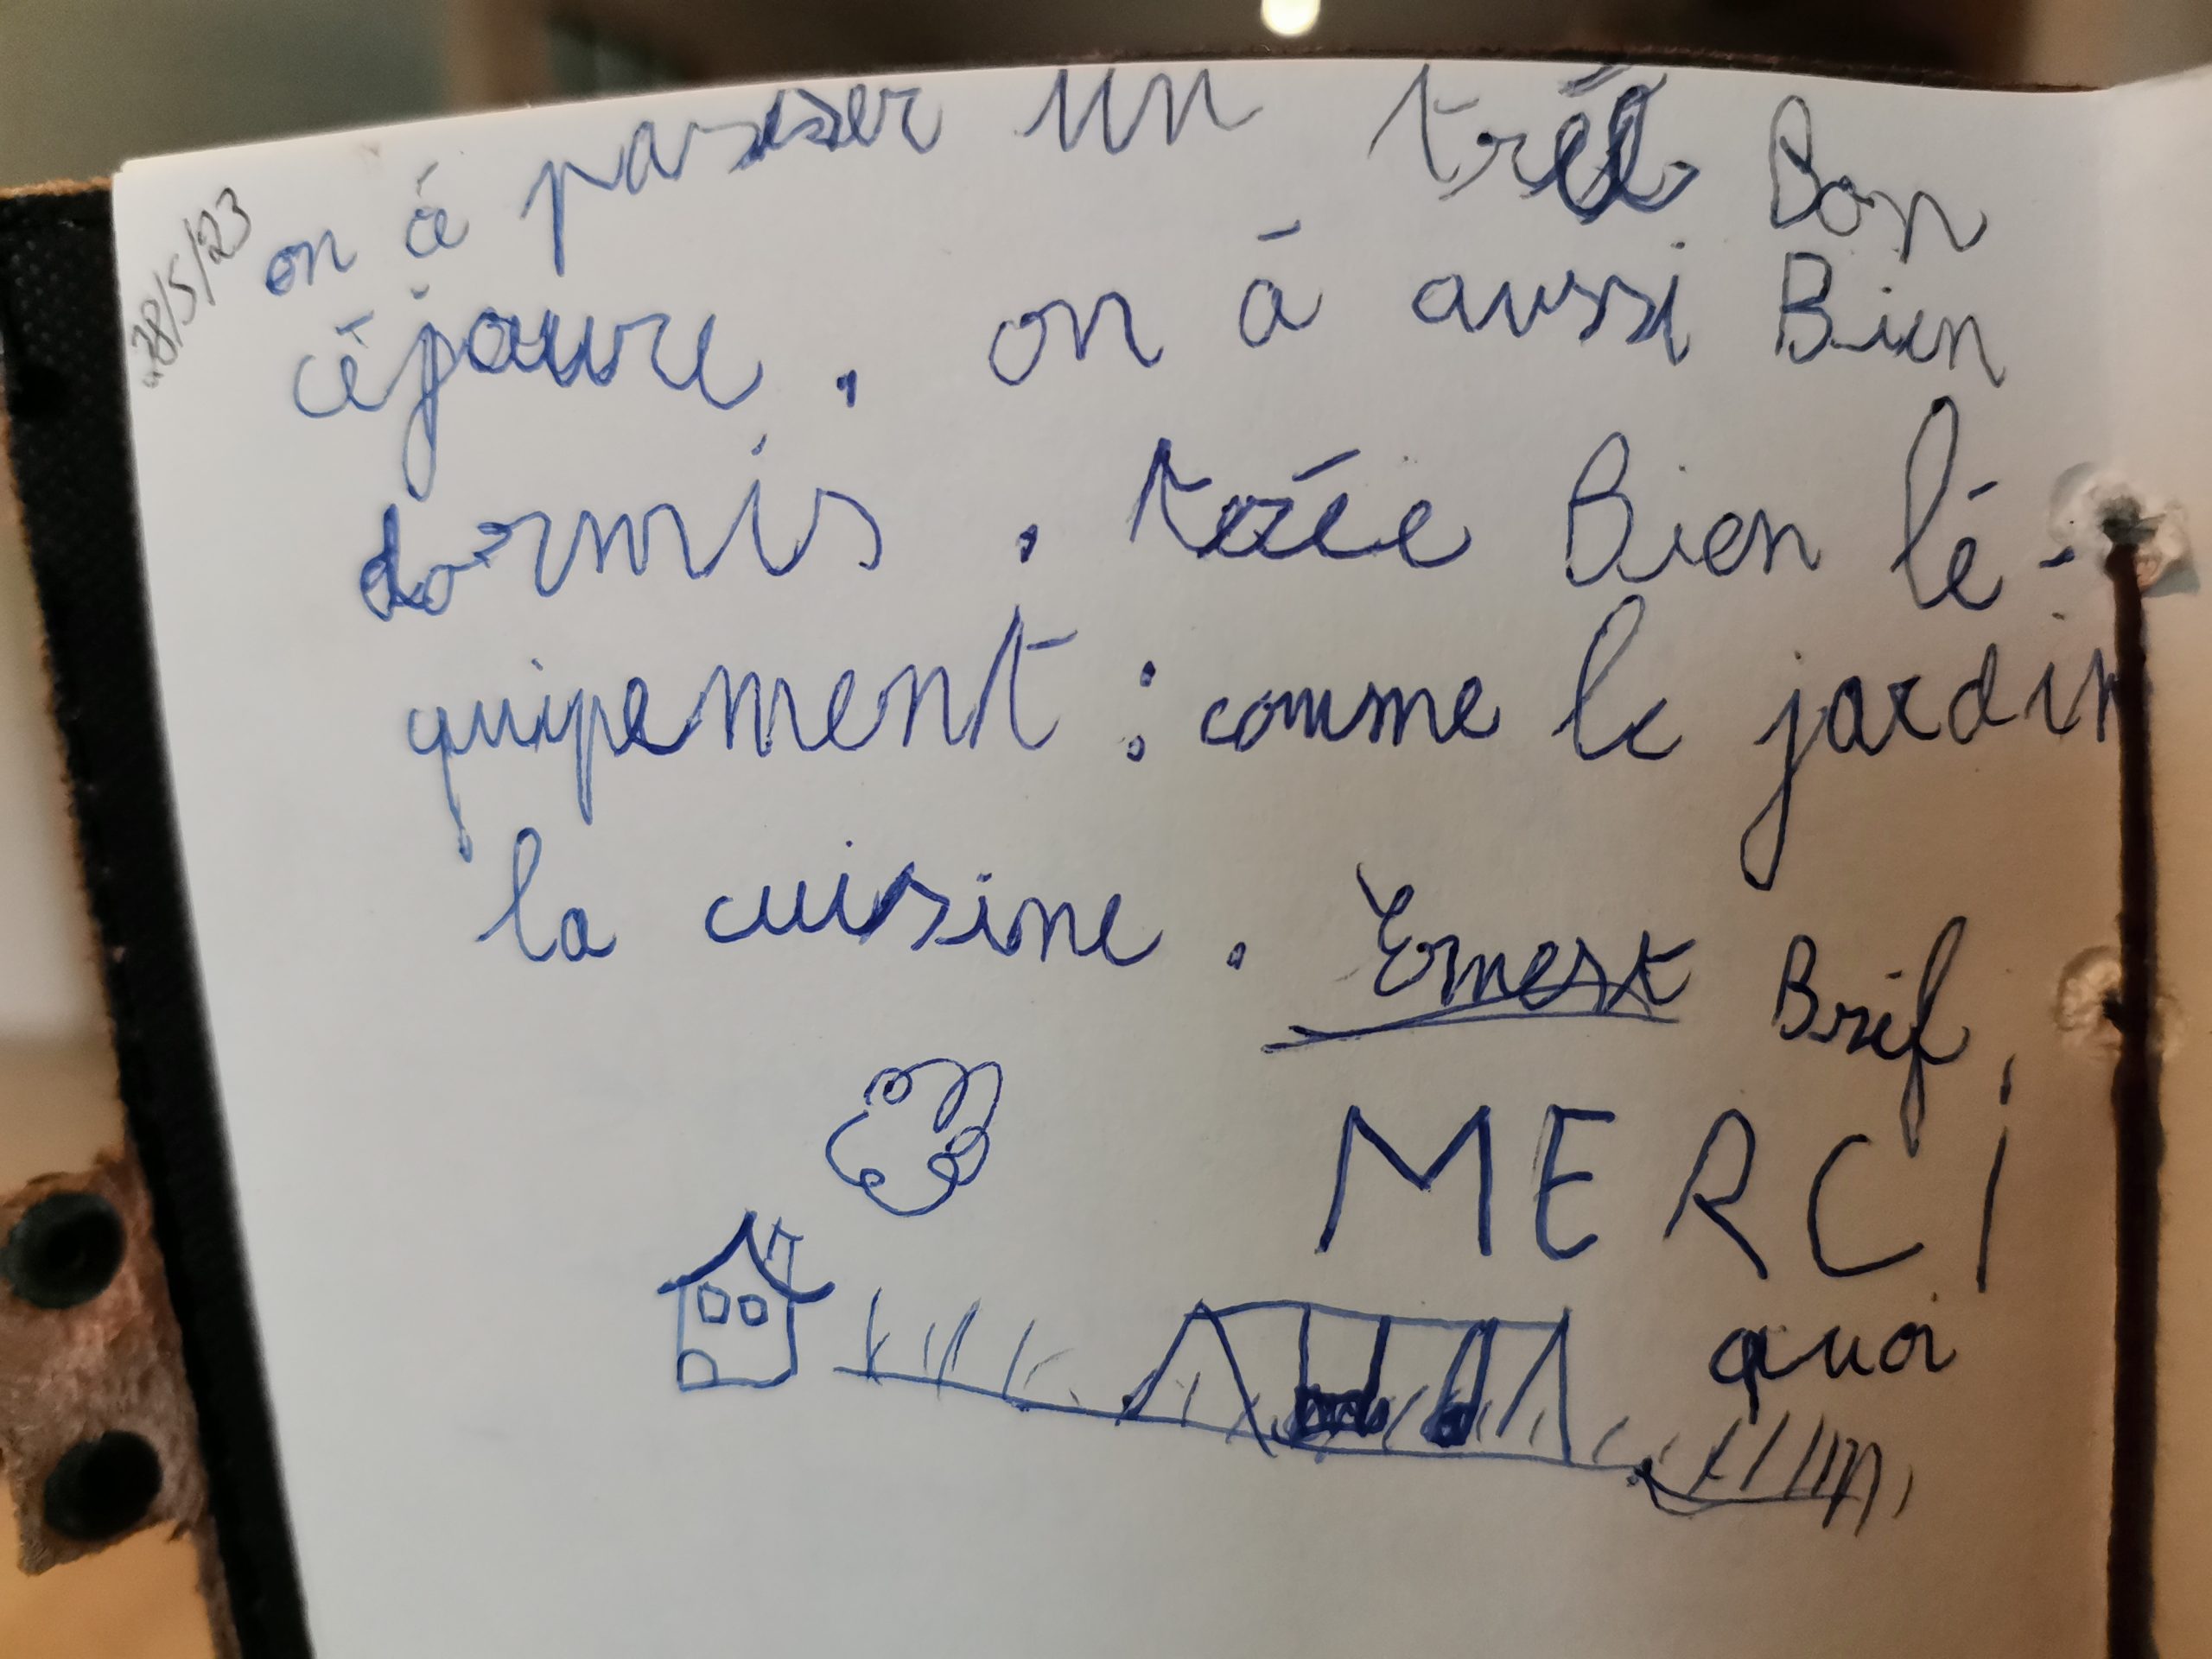 28/5/23
on à passer un trés Bon
céjoure. on à aussi Bien
dormis. trée Bien lé-
quipement : comme le jardin
la cuisine. Ernest Brif
MERCi
quoi